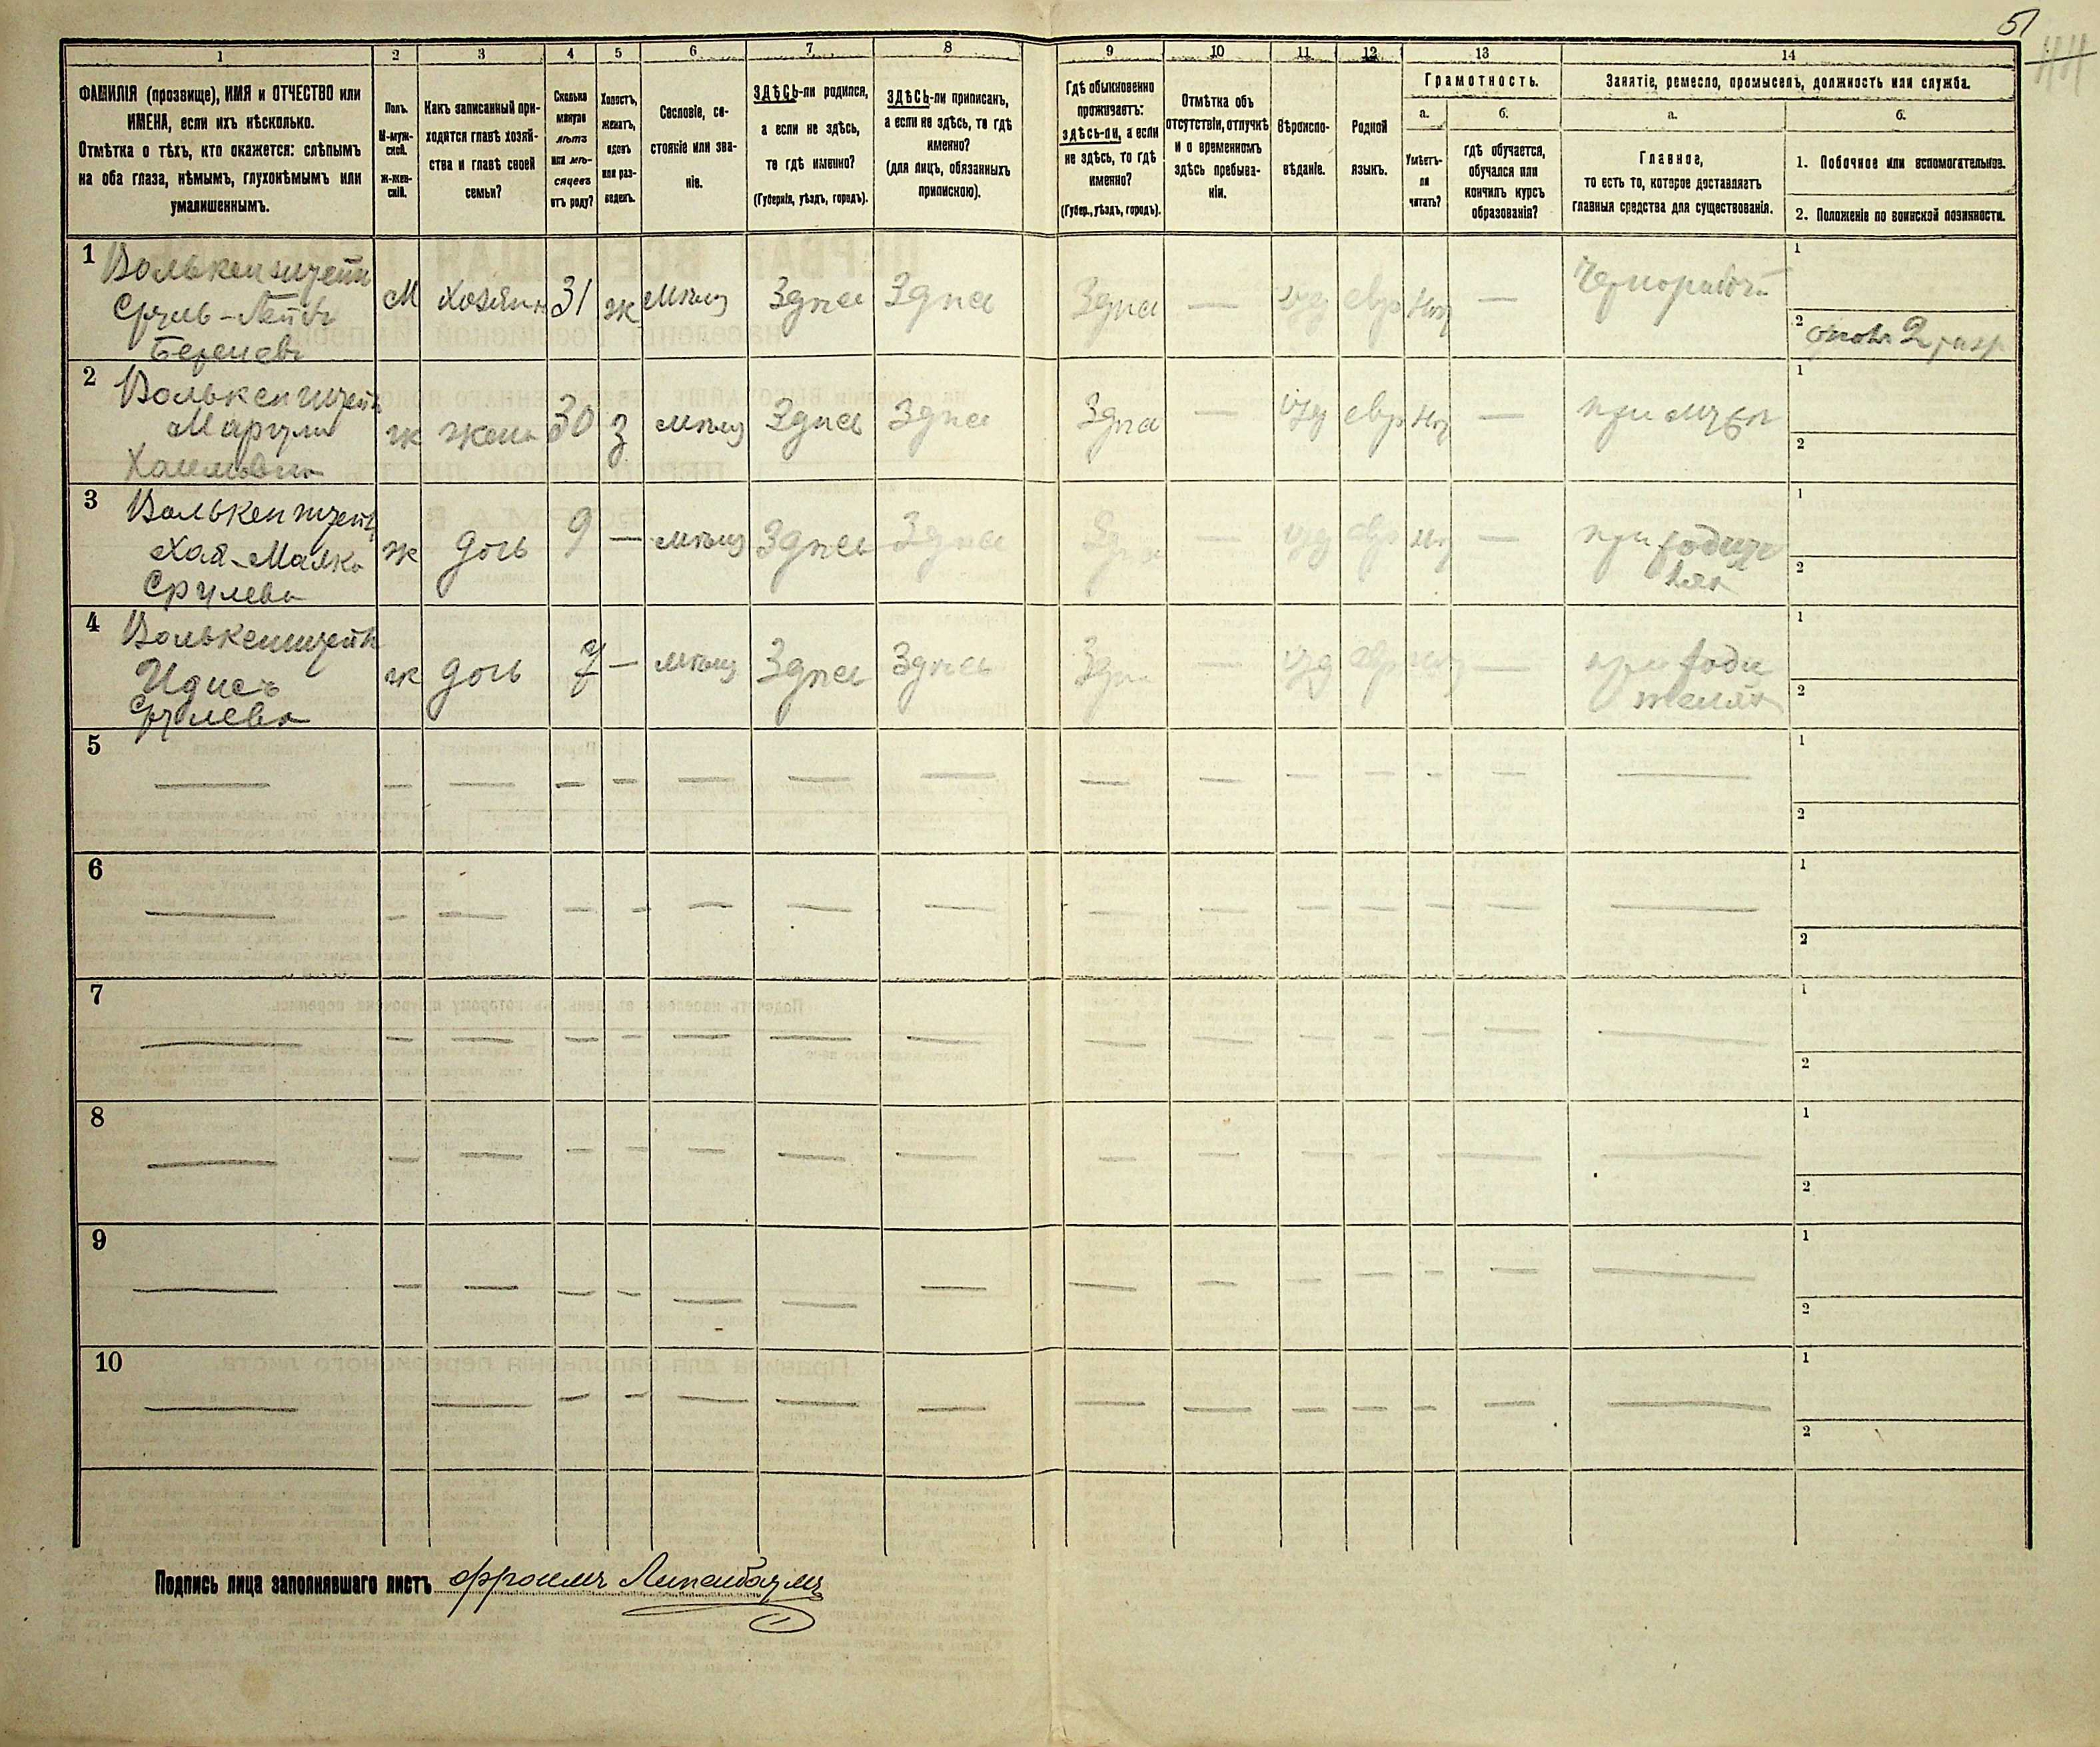 51
44
1 2 3 4 5 6 7 8 9 10 11 12 13 14
ФАМИЛІЯ (прозвище), ИМЯ и ОТЧЕСТВО или
ИМЕНА, если ихъ нѣсколько.
Отмѣтка о тѣхъ, кто окажется: слѣпымъ
на оба глаза, нѣмымъ, глухонѣмымъ или
умалишеннымъ.
Полъ.
М-муж-
ской.
Ж-жен-
скій.
Какъ записанный при-
ходится главѣ хозяй-
ства и главѣ своей
семьи?
Сколько
минуло
лѣтъ
или мѣ-
сяцевъ
отъ роду?
Холостъ,
женатъ,
вдовъ
или раз-
веденъ.
Сословіе, со-
стояніе или зва-
ніе.
ЗДѢСЬ-ли родился,
а если не здѣсь,
то гдѣ именно?
(Губернія, уѣздъ, городъ).
ЗДѢСЬ-ли приписанъ,
а если не здѣсь, то гдѣ
именно?
(для лицъ, обязанныхъ
припискою).
Гдѣ обыкновенно
проживаетъ:
здѣсь-ли, а если
не здѣсь, то гдѣ
именно?
(Губер., уѣздъ, городъ).
Отмѣтка объ
отсутствіи, отлучкѣ
и о временномъ
здѣсь пребыва-
ніи.
Вѣроиспо-
вѣданіе.
Родной
языкъ.
Грамотность.
а.
Умѣетъ-
ли
читать?
б.
гдѣ обучается,
обучался или
кончилъ курсъ
образованія?
Занятіе, ремесло, промыселъ, должность или служба.
а.
Главное,
то есть то, которое доставляетъ
главныя средства для существованія.
б.
1. Побочное или вспомогательное.
2. Положеніе по воинской повинности.
1 Волькенштейн М хозяин 31 ж мѣщ Здѣс Здѣс Здѣс — иуд евр нѣт — Чернорабочій 1
Сруль-Лейб 2 2 разр
Беркев
2 Волькенштейн ж жена 30 з мѣщ Здѣс Здѣс Здѣс — иуд евр нѣт — при мужѣ 1
2
Хаимовна
3 Волькенштейн ж дочь 9 — мѣщ Здѣс Здѣс Здѣс — иуд евр нѣт — при родите 1
Хая-Малка лях 2
Срулева
4 Волькенштейн ж дочь 7 — мѣщ Здѣс Здѣс Здѣс — иуд евр нѣт — при роди 1
Идисъ телях 2
Срулева
5 1
2
6 1
2
7 1
2
8 1
2
9 1
2
10 1
2
Подпись лица заполнявшаго листъ Фроимъ